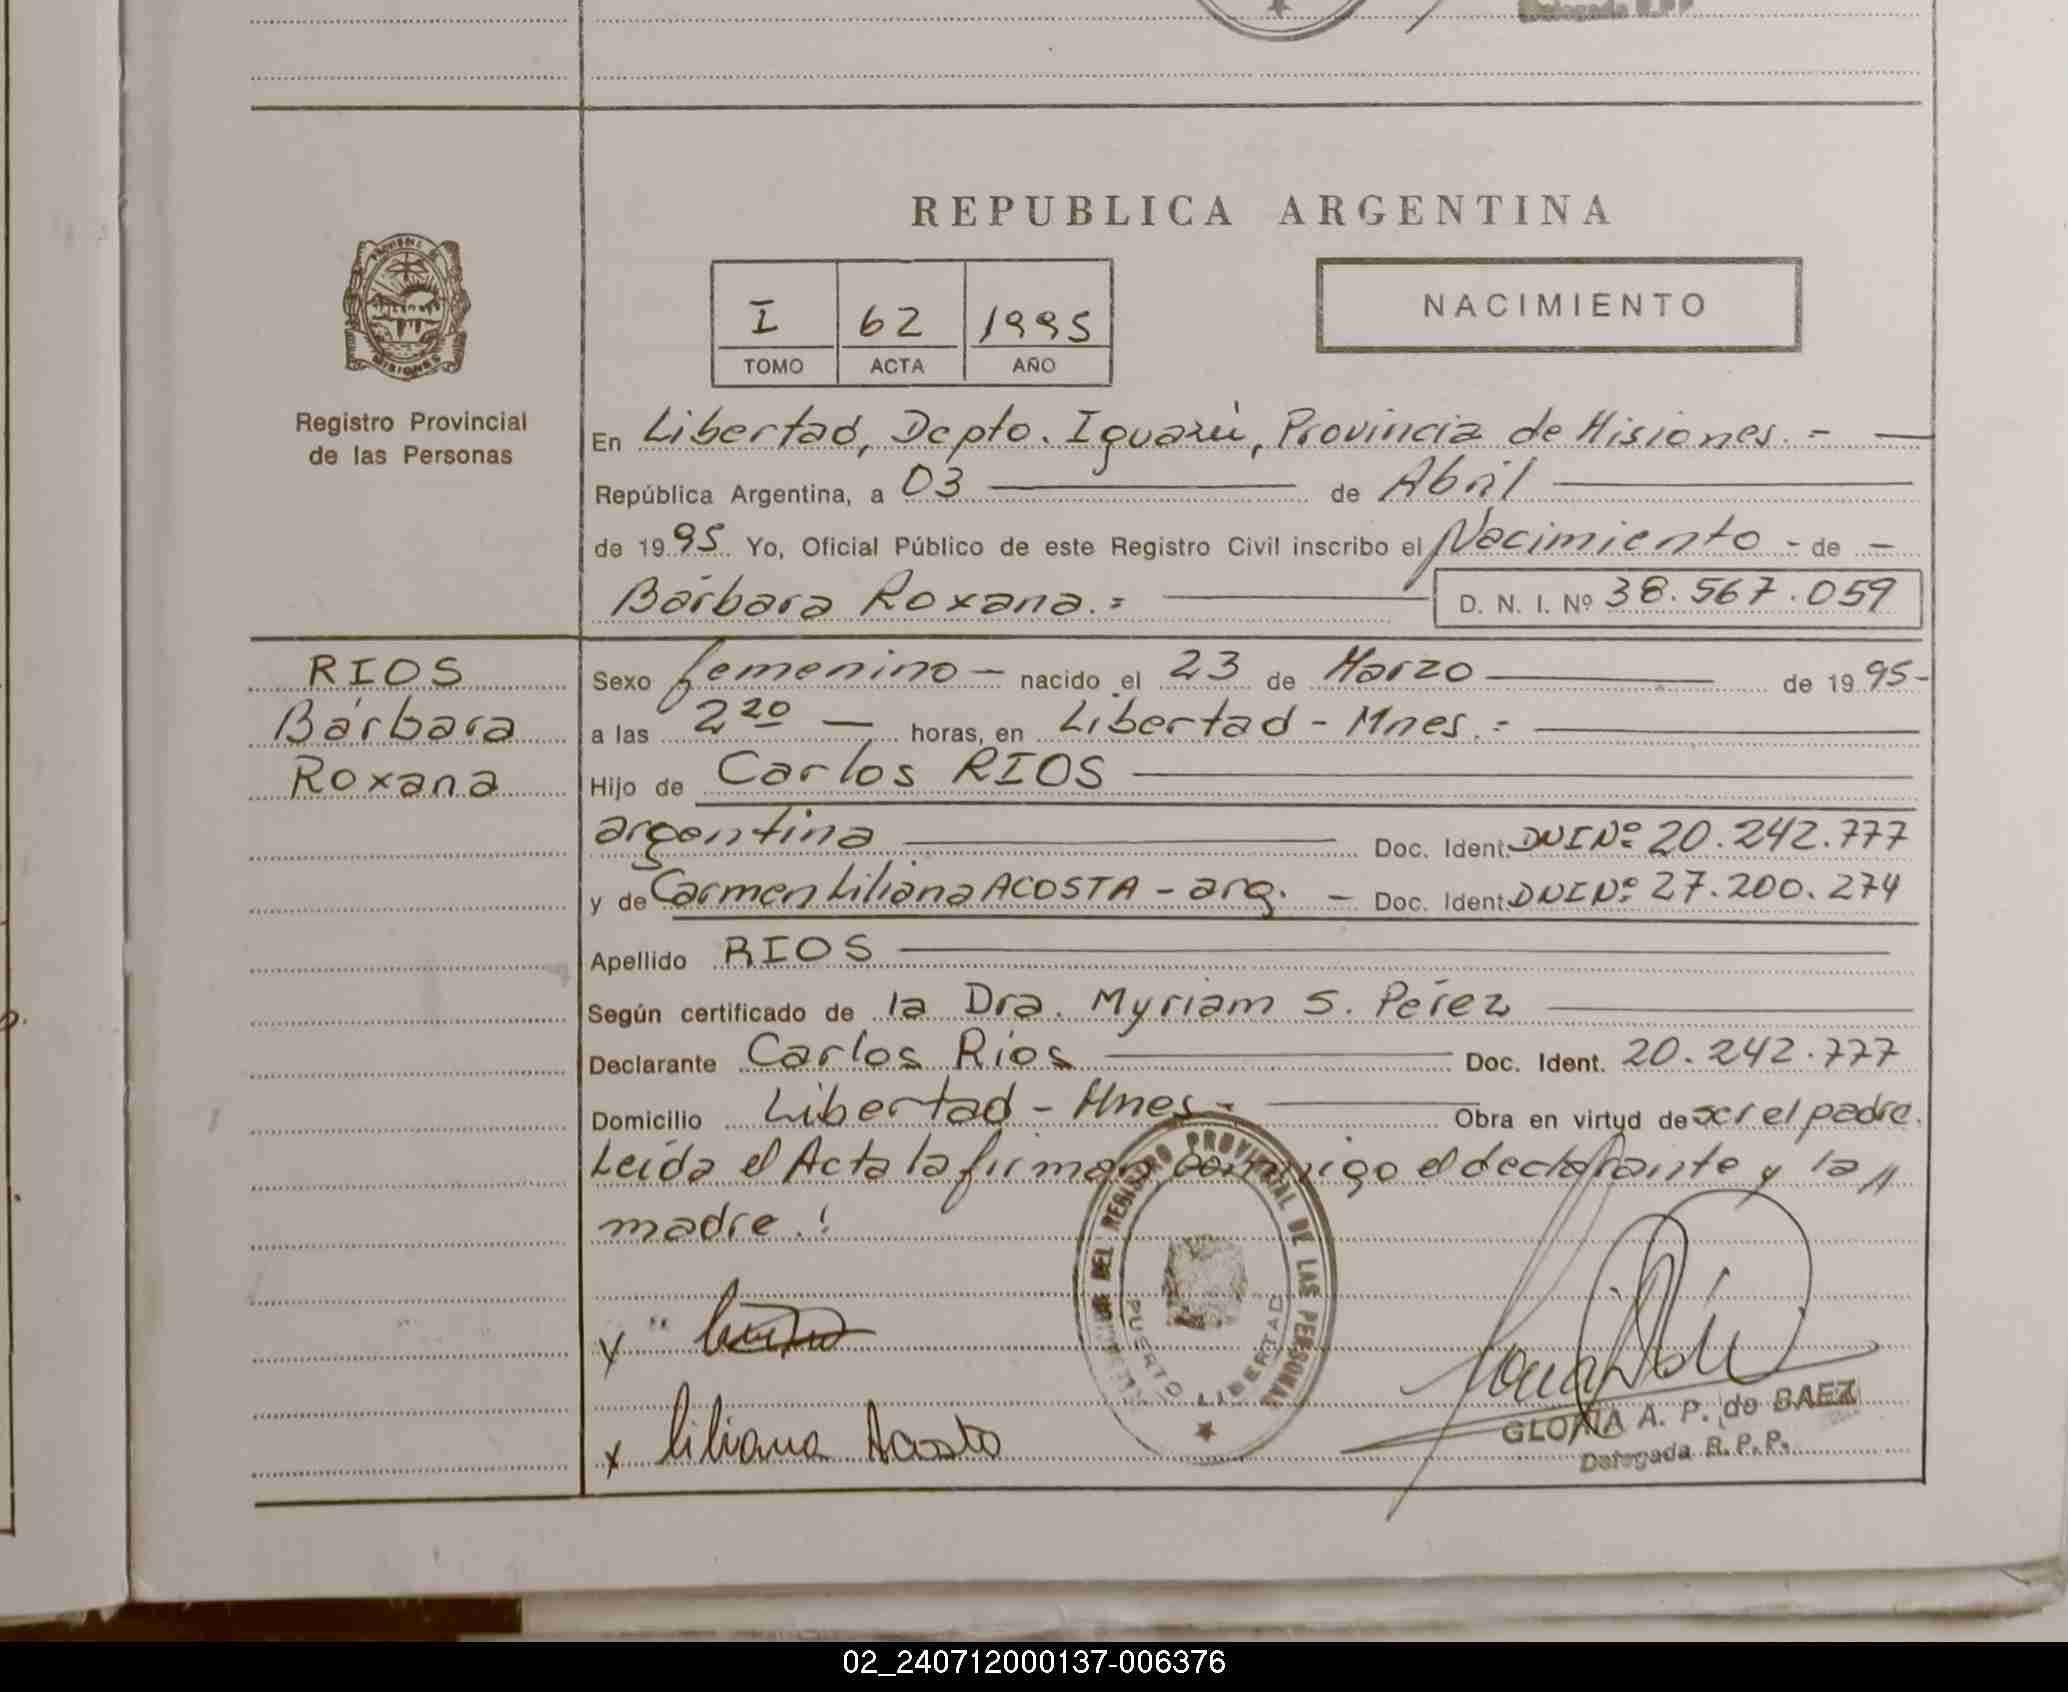 REPUBLICA ARGENTINA
PROVINCIA DE
MISIONES
Registro Provincial
de las Personas
I 62 1995
TOMO ACTA AÑO
NACIMIENTO
En Libertad, Dcpto. Iguazú, Provincia de Misiones.-
República Argentina, a 03 de Abril
de 1995 Yo, Oficial Público de este Registro Civil inscribo el Nacimiento - de -
Bárbara Roxana.= D. N. I. Nº 38.567.059
RIOS
Bárbara
Roxana
Sexo femenino - nacido el 23 de Marzo de 1995-
a las 2 20 horas, en Libertad - Mnes.=
Hijo de Carlos RIOS
argentina Doc. Ident. DNI Nº 20.242.777
y de Carmen Liliana ACOSTA - arg. - Doc. Ident. DNI Nº 27.200.274
Apellido RIOS
Según certificado de la Dra. Myriam S. Pérez
Declarante Carlos Ríos Doc. Ident. 20.242.777
Domicilio Libertad - Mnes.- Obra en virtud de ser el padre.
Leída el Acta la firman conmigo el declarante y la //
madre.!
DEL REGISTRO PROVINCIAL DE LAS PERSONAS
PUERTO LIBERTAD
x Liliana Acosta
GLORIA A. P. de BAEZ
Delegada R.P.P.
02_240712000137-006376